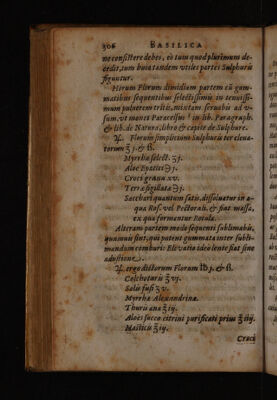 306 BASILICA
ne consistere debes, eò tum quod plurimum de-
cedit, tum huic tandem vtiles partes Sulphuris
figuntur.
Horum Florum dimidiam partem cū gum-
matibus sequentibus selectissimis in tenuissi-
mum puluerem tritis, mixtam seruabis ad v-
sum, vt monet Paracelsus in lib. Paragraph.
& lib. de Natura, libro & capite de Sulphure.
℞. Florum simplicium Sulphuris ter eleua-
torum ℥ j. & ß.
Myrrhæ select. ℥ j.
Aloë Epatici ℈ j.
Croci grana xv.
Terræ sigillatæ ℈ j.
Sacchari quantum satis, dissoluatur in a-
qua Ros. vel Pectorali, & fiat massa,
ex qua formentur Rotulæ.
Alteram partem modo sequenti sublimabis,
quamuis sint, qui putent gummata inter subli-
mandum comburi: Eleuatio ideo lentè fiat sine
adustione.
℞. ergo dictorum Florum ℔ j. & ß.
Colchotaris ℥ vj.
Salis fusi ℥ v.
Myrrhæ Alexandrinæ.
Thuris ana ℥ iij.
Aloës succo citrini purificati prius ℥ iiij.
Masticis ℥ iij.
Croci